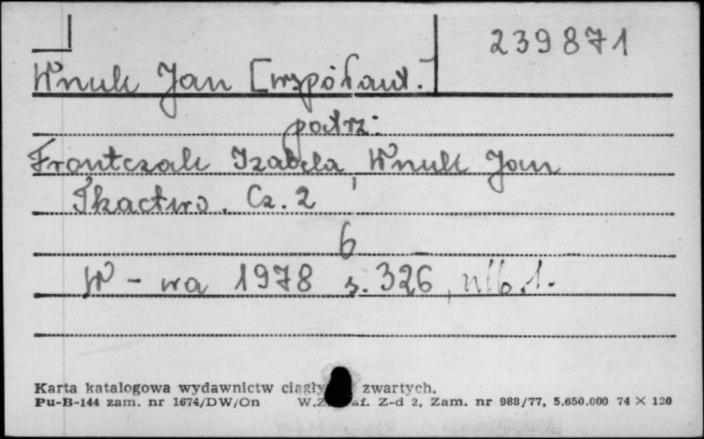 239871
Wnuk Jan [współaut.]
patrz:
Frontczak Izabela, Wnuk Jan
Tkactwo. Cz. 2
6
W-wa 1978 s. 326, nlb. 1.
Karta katalogowa wydawnictw ciągły zwartych.
Pu-B-144 zam. nr 1674/DW/On W.Z. af. Z-d 2, Zam. nr 988/77, 5.650.000 74 × 120